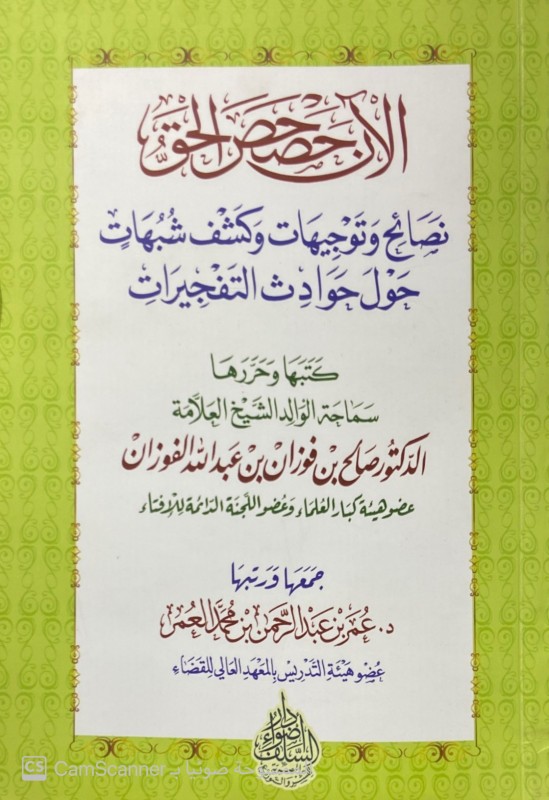 الآن حَصْحَصَ الحَقُّ
نَصَائِح وَتَوْجِيهَات وَكَشْف شُبُهَاتٍ
حَوْلَ حَوَادِث التَفْجِيرَاتِ
كَتَبَهَا وَحَرَّرَهَا
سَمَاحَة الوَالِد الشَّيْخ العَلَّامَة
الدكتور صَالح بن فوزان بن عبد الله الفوزان
عضو هيئة كبار العُلَمَاء وَعُضو اللَّجنَة الدَائمَة لِلإِفتَاء
جَمَعَهَا وَرَتبهَا
د. عُمَر بن عَبْد الرَّحمن بن مُحَمَّد العُمَر
عُضو هَيْئَة التَدْريس بِالمعْهَد العَالي لِلقَضَاء
دار
أضواء
السلف
CS CamScanner ـحة ضوئيا بـ